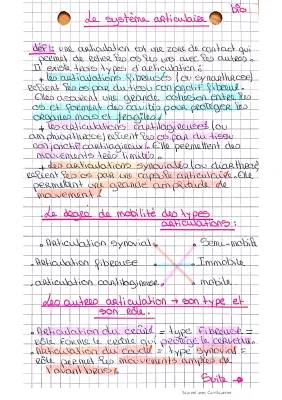 Le système articulaire
def: une articulation est une zone de contact qui
permet de relier les os les uns avec les autres.
Il existe trois types d'articulation:
+ les articulations fibreuses (ou synarthrose)
relient les os par du tissu conjonctif fibreux.
Elles assurent une grande cohésion entre les
os et forment des cavités pour protéger les
organes mous et fragiles!
+ les articulations cartilagineuses (ou
amphiarthrose) relient les os par du tissu
conjonctif cartilagineux. Elle permettent des
mouvements très limités.
+ les articulations synoviales (ou diarthrose)
relient les os par une capsule articulaire. Elle
permettent une grande amplitude de
mouvement!
Le degré de mobilité des types
articulations:
. Articulation synovial. . Semi-mobile
. Articulation fibreuse . Immobile
. articulation cartilagineuse. . mobile
Les autres articulation → son type et
son rôle.
. Articulation du crâne = type fibreuse =
rôle forme le crâne qui protège le cerveau.
. Articulation du coude = type synovial =
rôle permet les mouvements amples de
l'avant bras!
Suite →
Scanned with CamScanner